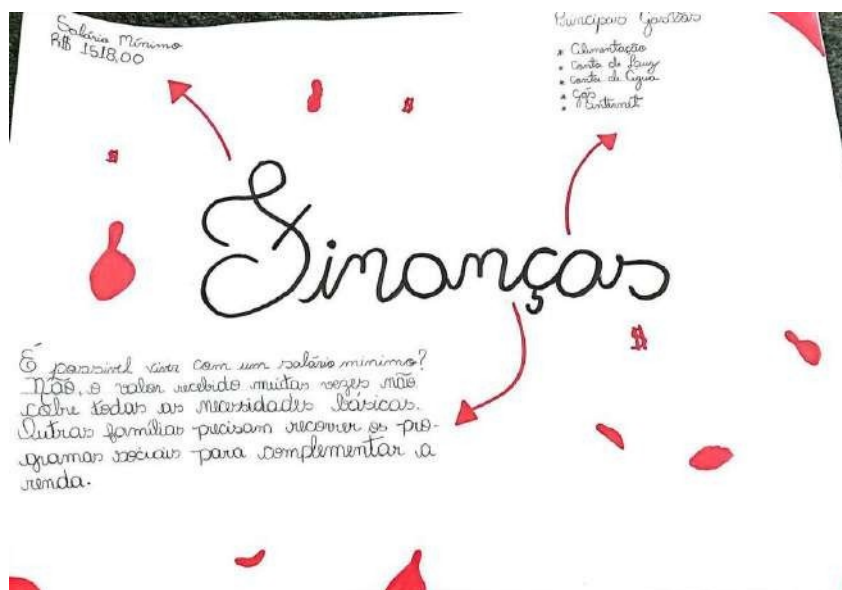 Salário Mínimo
R$ 1518,00
Principais Gastos
* Alimentação
* Conta de Luz
* Conta de Água
* Gás
* Internet
$
$
Finanças
$
É possivel viver com um salário minimo?
Não, o valor recebido muitas vezes não
cobre todas as necessidades básicas.
Outras famílias precisam recorrer os pro-
gramas sociais para complementar a
renda.